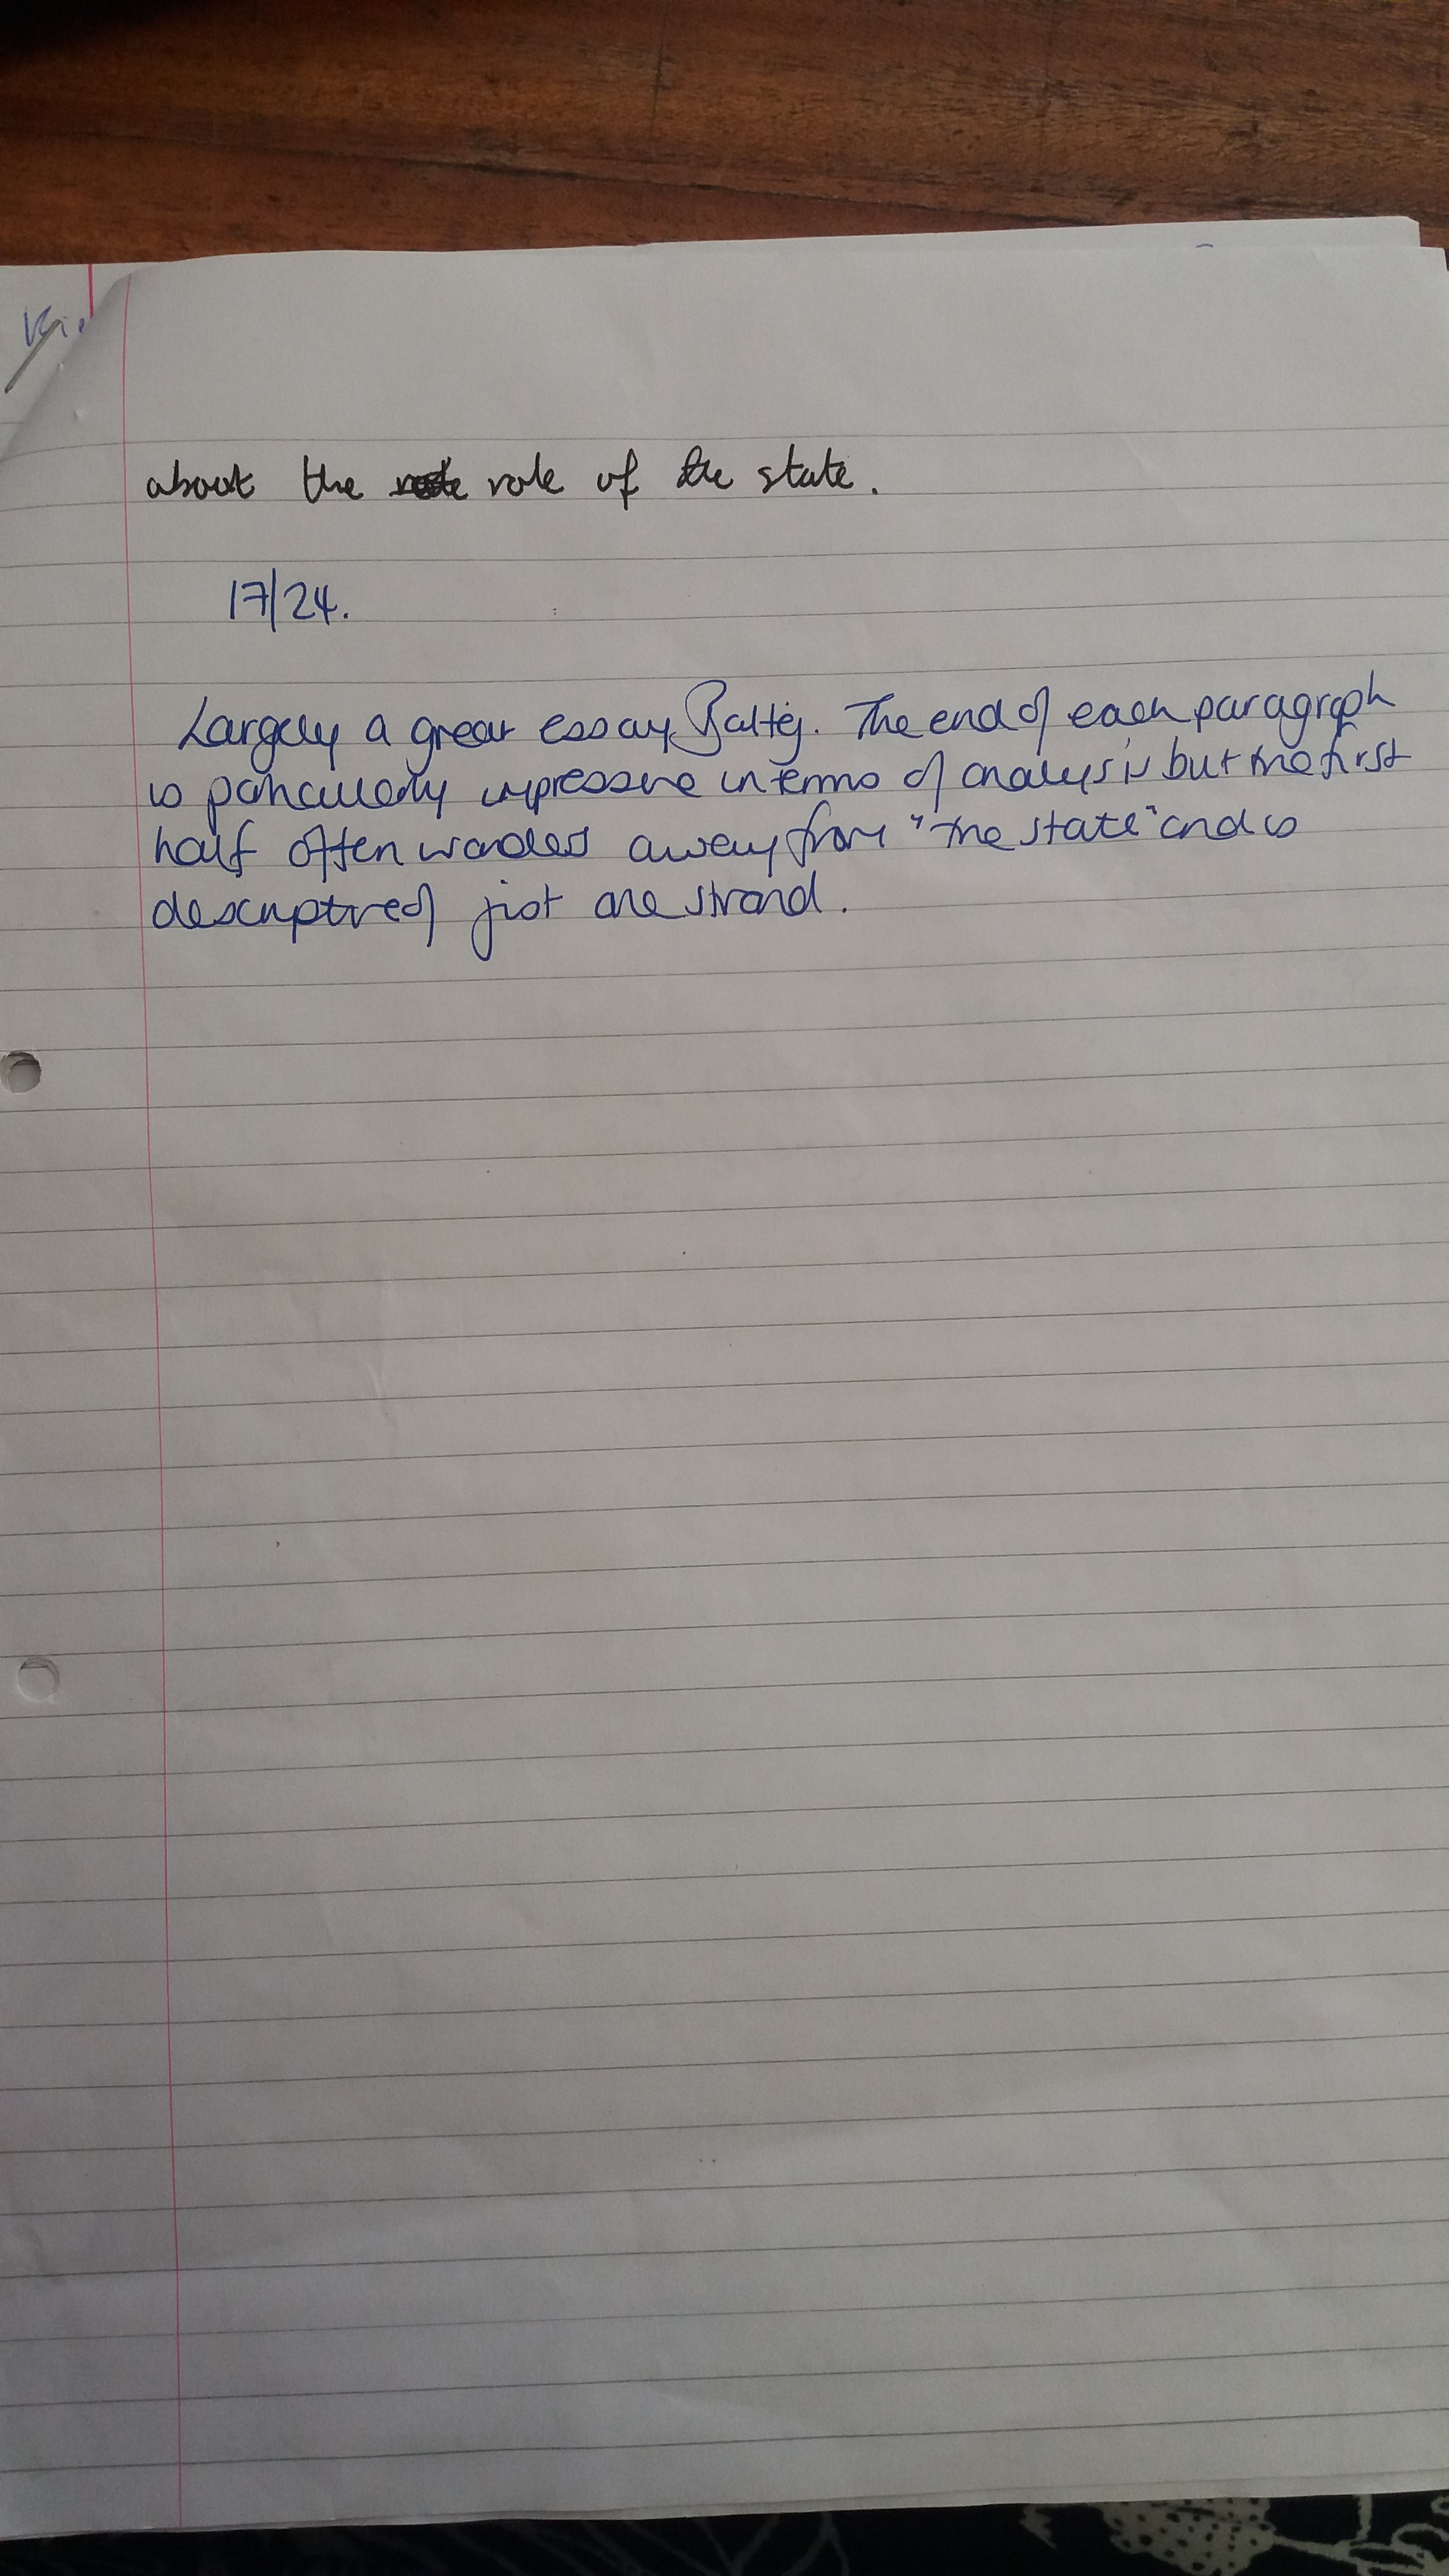 about the role of the state.
17/24.
Largely a great essay. The end of each paragraph
is particularly impressive in terms of analysis but the first
half often wanders away from "the state" and is
descriptive of just one strand.